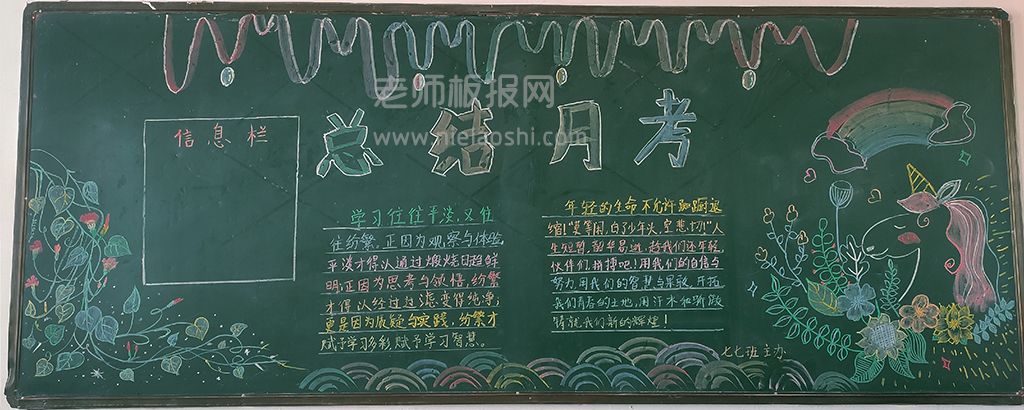 老师板报网
www.nielaoshi.com
信息栏
总结月考
学习往往平淡,又往
往纷繁。正因为观察与体验,
平淡才得以通过煅烧日趋鲜
明;正因为思考与领悟,纷繁
才得以经过过滤变得纯净;
更是因为质疑与实践,纷繁才
赋予学习多彩,赋予学习智慧。
年轻的生命不允许
人
生短暂,韶华易逝,趁我们还年轻,
伙伴们,拼搏吧!用我们的自信与
努力,用我们的智慧与果敢,开拓
我们青春的土地,用汗水和
铸就我们新的辉煌!
七七班主办